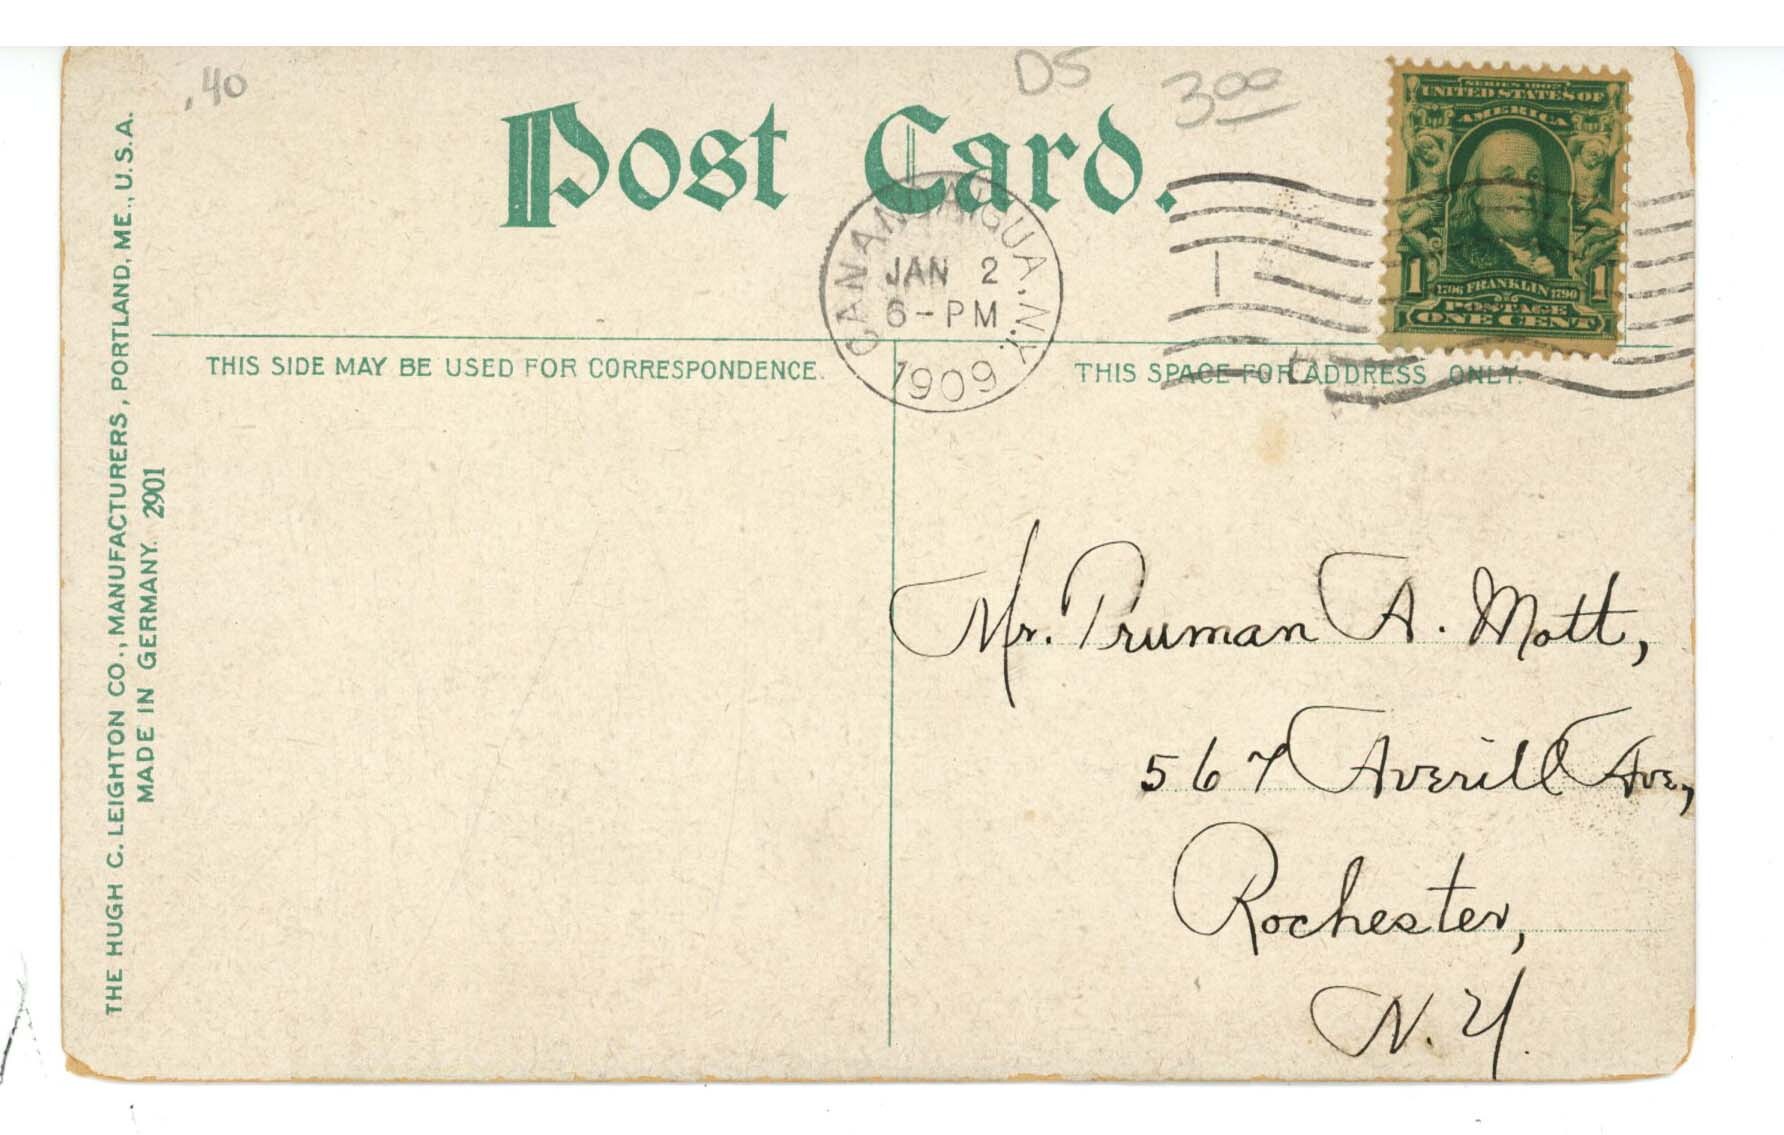 .40
D5
3.00
Post Card.
SERIES 1902
UNITED STATES OF
AMERICA
1706 FRANKLIN 1790
1 1
POSTAGE
ONE CENT
CANANDAIGUA, N.Y.
JAN 2
6-PM
1909
1
THIS SIDE MAY BE USED FOR CORRESPONDENCE.
THIS SPACE FOR ADDRESS ONLY.
THE HUGH C. LEIGHTON CO., MANUFACTURERS, PORTLAND, ME., U.S.A.
MADE IN GERMANY. 2901
Mr. Truman A. Mott,
567 Averill Ave,
Rochester,
N.Y.